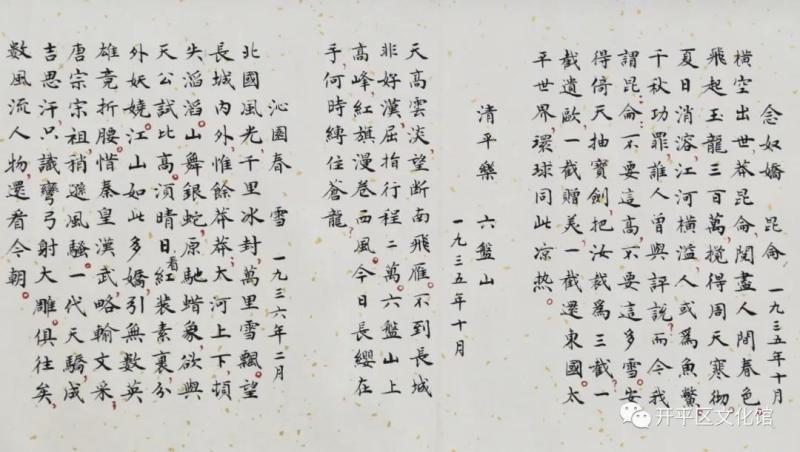 念奴嬌 昆侖 一九三五年十月
橫空出世，莽昆侖，閱盡人間春色。
飛起玉龍三百萬，攪得周天寒徹。
夏日消溶，江河橫溢，人或為魚鱉。
千秋功罪，誰人曾與評說，而今我
謂昆侖，不要這高，不要這多雪。安
得倚天抽寶劍，把汝裁為三截，一
截遺歐，一截贈美，一截還東國。太
平世界，環球同此涼熱。
清平樂 六盤山 一九三五年十月
天高雲淡，望斷南飛雁。不到長城
非好漢，屈指行程二萬。六盤山上
高峰，紅旗漫卷西風。今日長纓在
手，何時縛住蒼龍。
沁園春 雪 一九三六年二月
北國風光，千里冰封，萬里雪飄。望
長城內外，惟餘莽莽；大河上下，頓
失滔滔。山舞銀蛇，原馳蠟象，欲與
天公試比高。須晴日，看紅裝素裹，分
外妖嬈。江山如此多嬌，引無數英
雄競折腰。惜秦皇漢武，略輸文采，
唐宗宋祖，稍遜風騷。一代天驕，成
吉思汗，只識彎弓射大雕。俱往矣，
數風流人物，還看今朝。
开平区文化馆